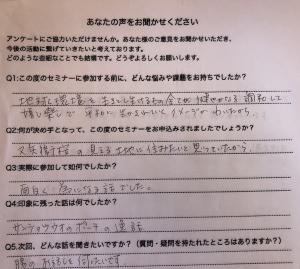 あなたの声をお聞かせください
アンケートにご協力いただけませんか。あなた様のご意見をお聞かせいただき、
今後の活動に繋げていきたいと考えております。
どのような些細なことでも結構です。どうぞよろしくお願いします。
Q1:この度のセミナーに参加する前に、どんな悩みや課題をお持ちでしたか?
地球環境
生きとし生けるもの全てが健やかなる調和して
Q2:何が決め手となって、この度のセミナーをお申込みされましたでしょうか?
見える土地に住みたいと思っていたから
Q3:実際に参加して如何でしたか?
面白く為になる話でした。
Q4:印象に残った話は何でしたか?
サンチョウウオのポーチの逸話
Q5.次回、どんな話を聞きたいですか?(質問・疑問を持たれたところはありますか?)
腸のお話しを伺いたいです